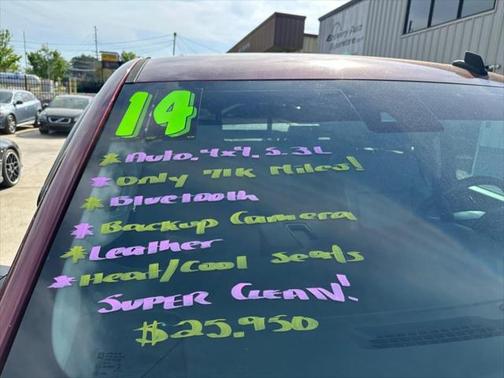 Recovery Auto
14
* Auto. 4x4. 5.3L
* Only 71K Miles!
* Bluetooth
* Backup Camera
* Leather
* Heat/Cool Seats
Super Clean!
$25.950